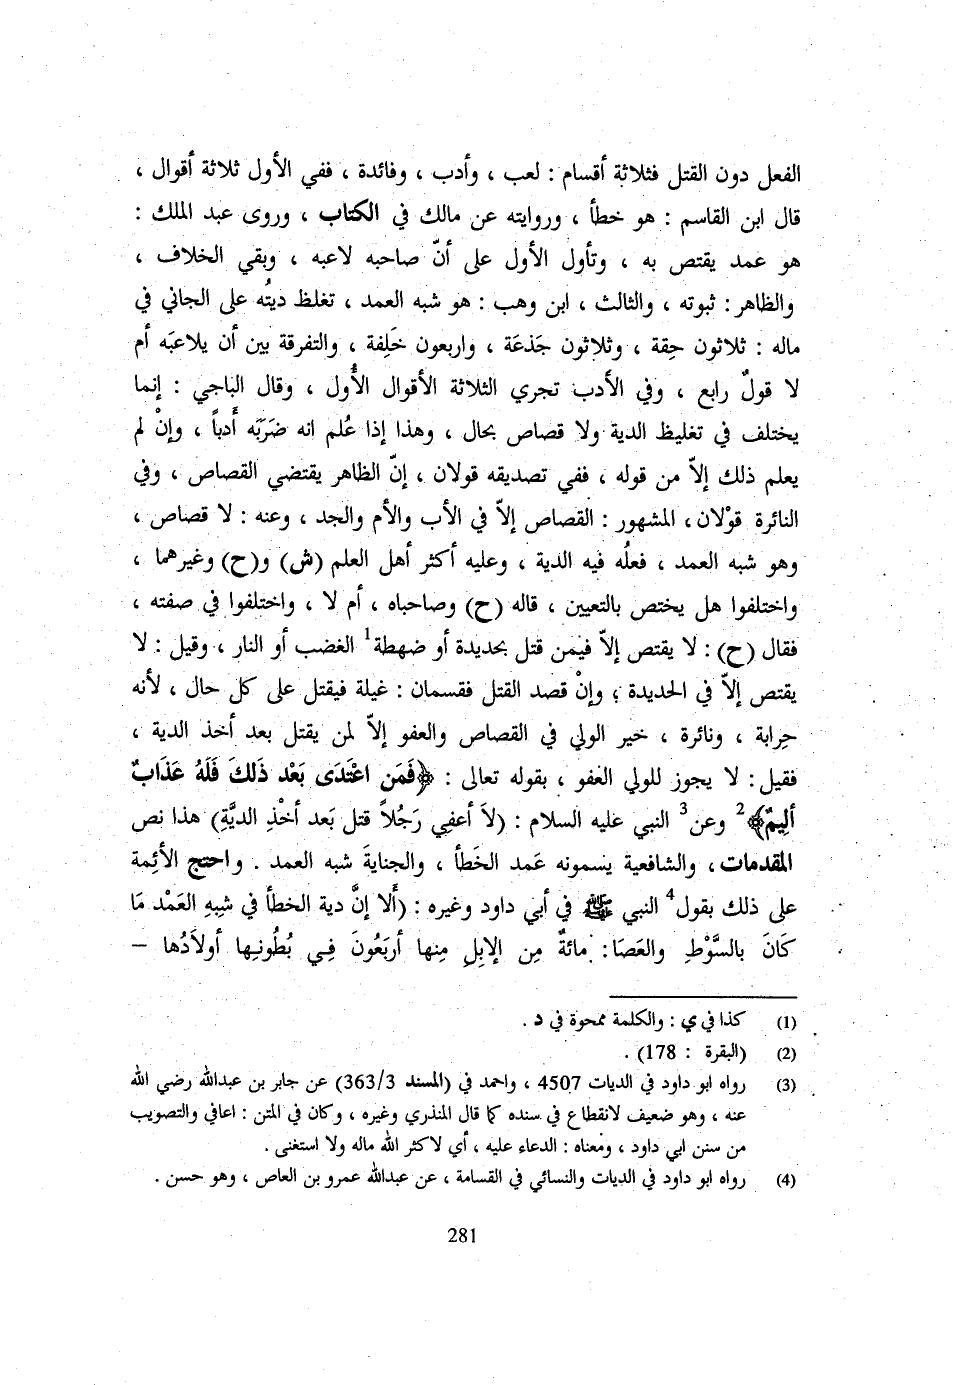 الفعل دون القتل فثلاثة أقسام : لعب ، وأدب ، وفائدة ، ففي الأول ثلاثة أقوال ،
قال ابن القاسم : هو خطأ ، وروايته عن مالك في الكتاب ، وروى عبد الملك :
هو عمد يقتص به ، وتأول الأول على أنّ صاحبه لاعبه ، وبقي الخلاف ،
والظاهر : ثبوته ، والثالث ، ابن وهب : هو شبه العمد ، تغلظ ديتُه على الجاني في
ماله : ثلاثون حِقة ، وثلاثون جَذعَة ، واربعون خَلِفة ، والتفرقة بين أن يلاعبَه أم
لا قولٌ رابع ، وفي الأدب تجري الثلاثة الأقوال الأُول ، وقال الباجي : إنما
يختلف في تغليظ الدية ولا قصاص بحال ، وهذا إذا عُلم انه ضَرَبَه أدباً ، وإنْ لم
يعلم ذلك إلاّ من قوله ، ففي تصديقه قولان ، إنّ الظاهر يقتضي القصاص ، وفي
النائرة قوْلان ، المشهور : القصاص إلاّ في الأب والأم والجد ، وعنه : لا قصاص ،
وهو شبه العمد ، فعلُه فيه الدية ، وعليه أكثر أهل العلم (ش) و(ح) وغيرهما ،
واختلفوا هل يختص بالتعيين ، قاله (ح) وصاحباه ، أم لا ، واختلفوا في صفته ،
فقال (ح) : لا يقتص إلاّ فيمن قتل بحديدة أو ضهطة1 الغضب أو النار ، وقيل : لا
يقتص إلاّ في الحديدة ؛ وإنْ قصد القتل فقسمان : غيلة فيقتل على كل حال ، لأنه
حِرابة ، ونائرة ، خير الولي في القصاص والعفو إلاّ لمن يقتل بعد أخذ الدية ،
فقيل : لا يجوز للولي العَفو ، بقوله تعالى : ﴿فَمَن اعْتَدَى بَعْد ذَلكَ فَلَهُ عَذَابٌ
أليمٌ﴾2 وعن3 النبي عليه السلام : (لاَ أعفِي رَجُلاً قتل بَعد أخْذِ الديَّةِ) هذا نص
المقدمات ، والشافعية يسمونه عَمد الخَطأ ، والجنايةَ شبه العمد . واحتج الأئِمة
على ذلك بقول4 النبي ﷺ في أبي داود وغيره : (أَلا إنَّ دية الخطأ في شبِهِ العَمْد مَا
كَانَ بالسَّوْطِ والعَصَا : مائةٌ مِن الإبِلِ مِنها أربَعُونَ فِـي بُطُونـِها أولاَدُها –
(1) كذا في ي : والكلمة ممحوة في د .
(2) (البقرة : 178) .
(3) رواه ابو داود في الديات 4507 ، واحمد في (المسند 363/3) عن جابر بن عبدالله رضي الله
عنه ، وهو ضعيف لانقطاع في سنده كما قال المنذري وغيره ، وكان في المتن : اعافي والتصويب
من سنن ابي داود ، ومعناه : الدعاء عليه ، أي لا كثر الله ماله ولا استغنى .
(4) رواه ابو داود في الديات والنسائي في القسامة ، عن عبدالله عمرو بن العاص ، وهو حسن .
281